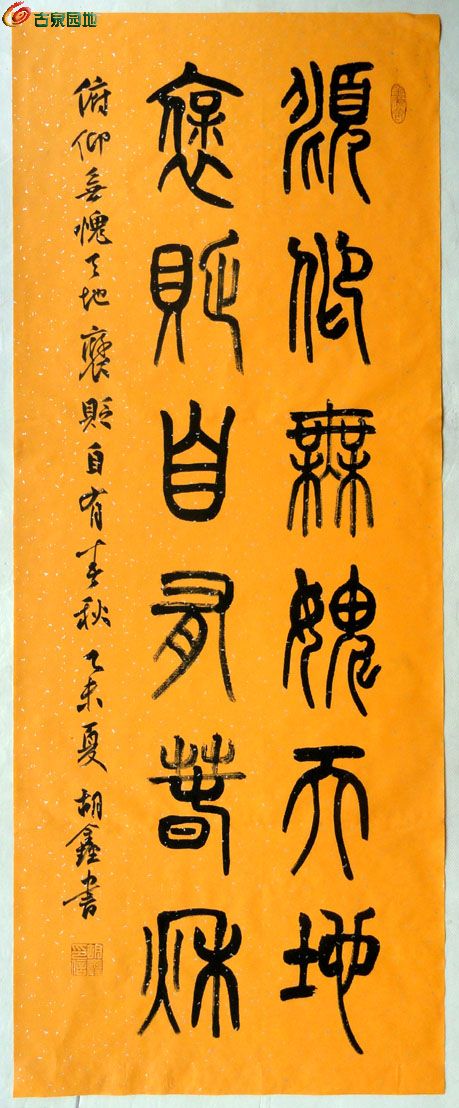 古泉园地
俯仰無愧天地
褒貶自有春秋
俯仰無愧天地褒貶自有春秋乙未夏胡鑫書